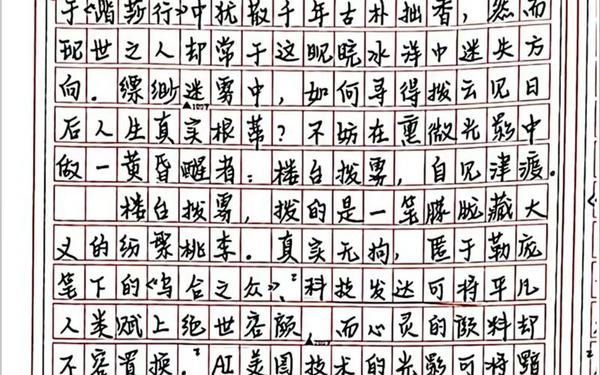 于《踏莎行》中犹散千年古朴拙香，然而
现世之人却常于这昵晓水洋中迷失方
向．缥缈迷雾中，如何寻得拨云见日
后人生真实根蒂？不妨在熏微光影中
做一黄昏醒者：楼台拨雾，自见津渡．
楼台拨雾，拨的是一笔朦胧藏大
义的纷繁桃李．真实无拘，匿于勒庞
笔下的《乌合之众》、"科技发达可将平凡
人类赋上绝世容颜 而心灵的颜料却
不容置换．"AI美图技术的光影可将黯